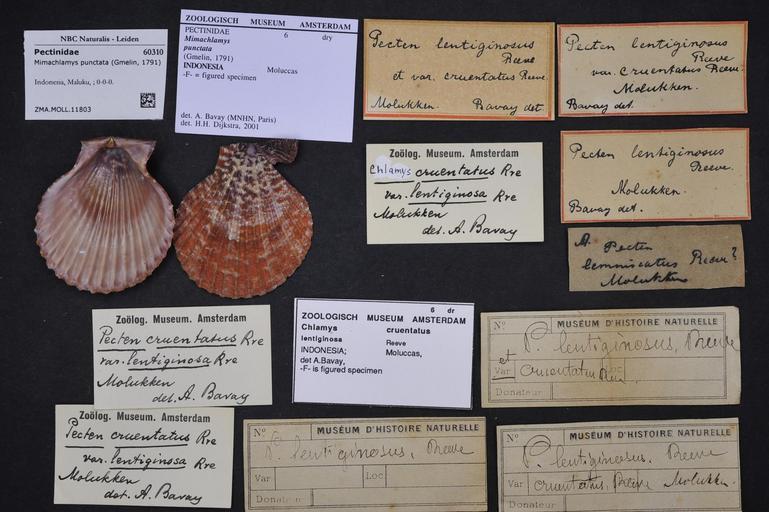 NBC Naturalis - Leiden
Pectinidae 60310
Mimachlamys punctata (Gmelin, 1791)
Indonesia, Maluku, ; 0-0-0.
ZMA.MOLL.11803
ZOOLOGISCH MUSEUM AMSTERDAM
PECTINIDAE 6 dry
Mimachlamys
punctata
(Gmelin, 1791)
INDONESIA Moluccas
-F- = figured specimen
det. A. Bavay (MNHN, Paris)
det. H.H. Dijkstra, 2001
Pecten lentiginosus
Reeve
et var. cruentatus Reeve
Molukken. Bavay det.
Pecten lentiginosus
Reeve
var. cruentatus Reeve.
Molukken.
Bavay det.
Zoölog. Museum. Amsterdam
Chlamys cruentatus Rve
var. lentiginosa Rve
Molukken
det. A. Bavay
Pecten lentiginosus
Reeve.
Molukken.
Bavay det.
A. Pecten
lemniscatus Reeve?
Molukken
Zoölog. Museum. Amsterdam
Pecten cruentatus Rve
var. lentiginosa Rve
Molukken
det. A. Bavay
6 dr
ZOOLOGISCH MUSEUM AMSTERDAM
Chlamys cruentatus
lentiginosa Reeve
INDONESIA; Moluccas,
det A.Bavay,
-F- is figured specimen
No MUSÉUM D'HISTOIRE NATURELLE
P. lentiginosus, Reeve
et
Var cruentatus Loc
Donateur
Zoölog. Museum. Amsterdam
Pecten cruentatus Rve
var. lentiginosa Rve
Molukken
det. A. Bavay
No MUSÉUM D'HISTOIRE NATURELLE
P. lentiginosus, Reeve
Var Loc
Donateur
No MUSÉUM D'HISTOIRE NATURELLE
P. lentiginosus. Reeve
Var cruentatus, Reeve Molukken.
Donateur